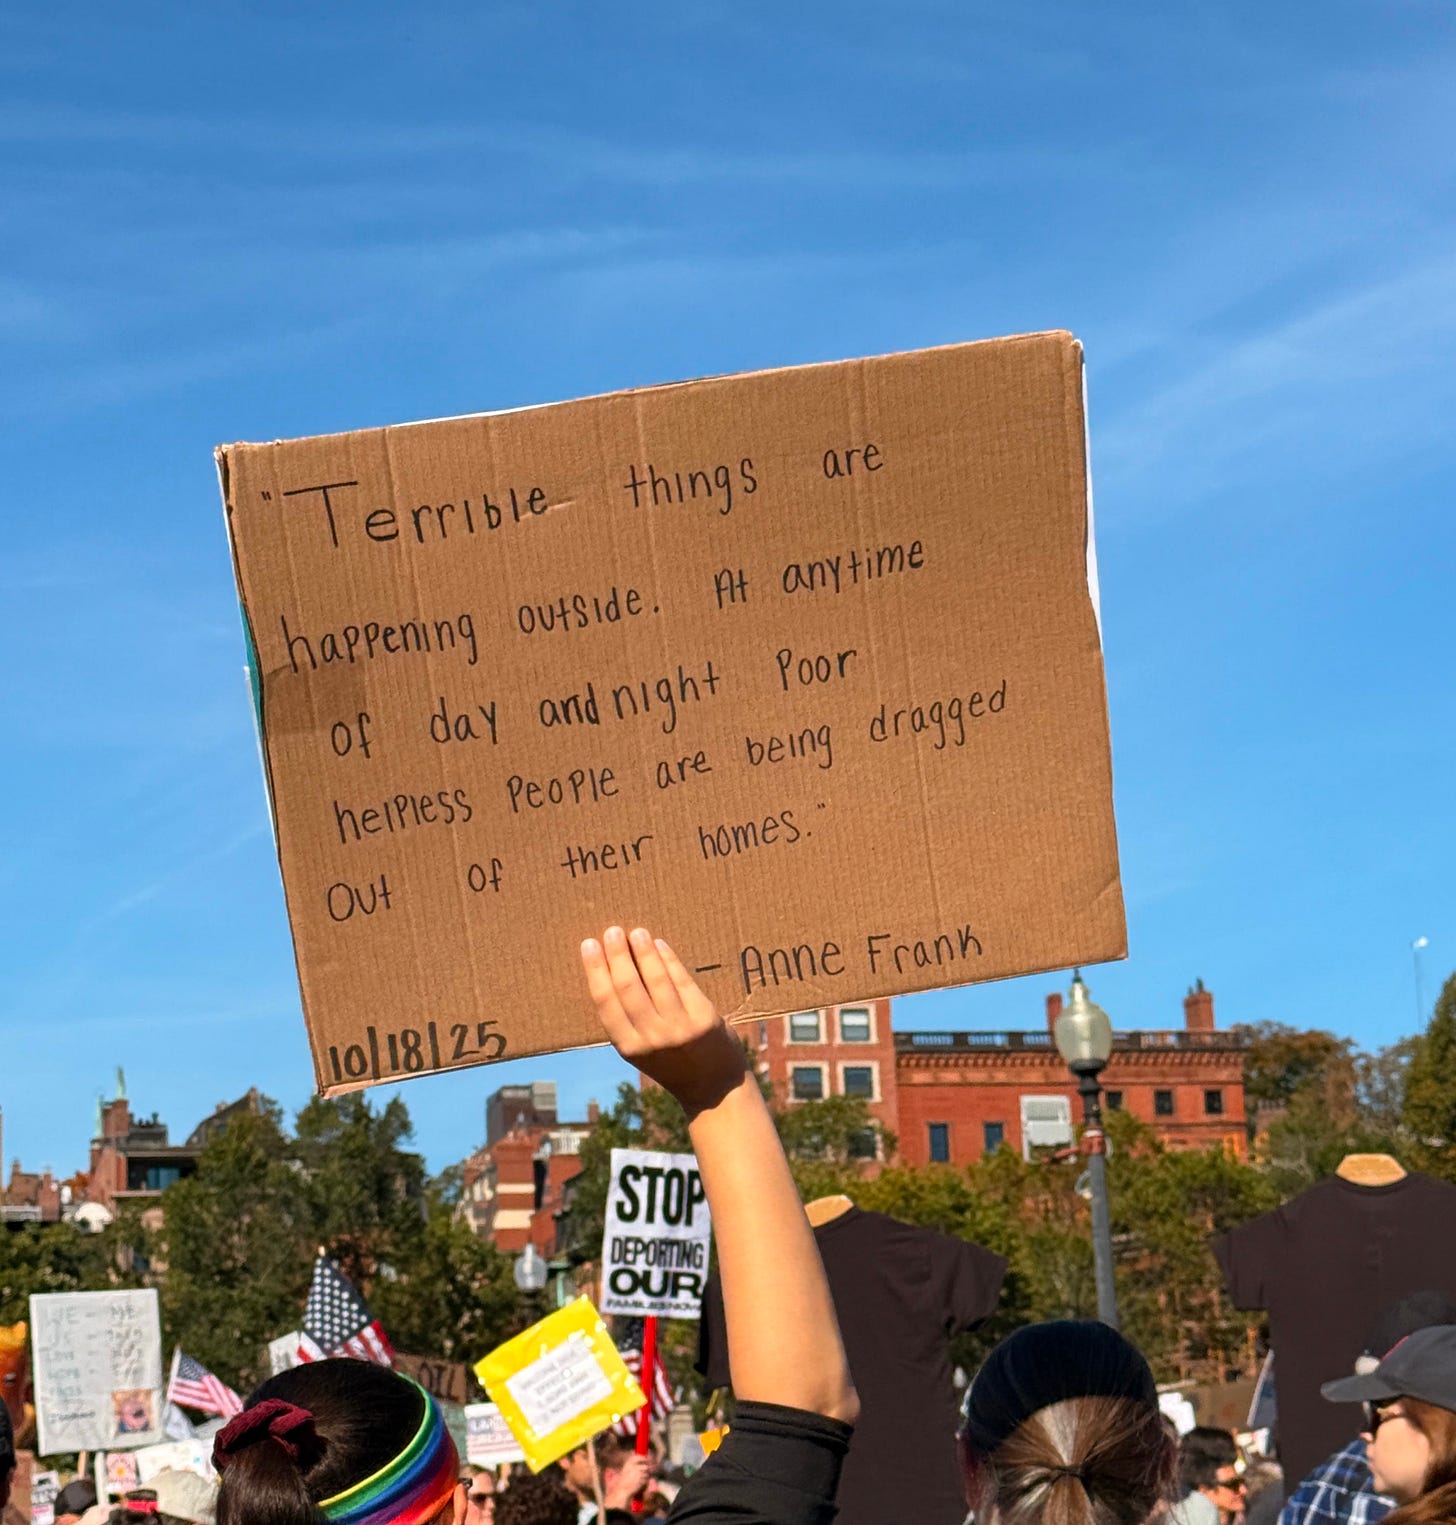 "Terrible things are
happening outside. At anytime
of day and night Poor
helpless People are being dragged
Out of their homes."
- Anne Frank
10/18/25
STOP
DEPORTING
OUR
FAMILIES NOW